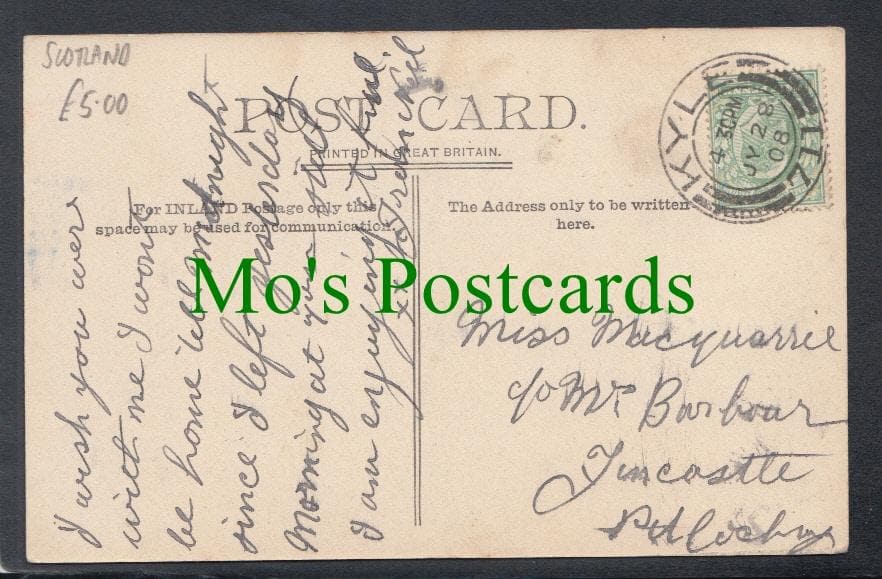 SCOTLAND
£5.00
POST CARD.
PRINTED IN GREAT BRITAIN.
For INLAND Postage only this
space may be used for communication.
The Address only to be written
here.
KYLE
4.30PM
JY 28
08
Mo's Postcards
I wish you were
with me I wont
be home till midnight
since I left yesterday
Morning at
I am enjoying it fine.
Miss Macquarrie
c/o Mr Barbour
Fincastle
Pitlochry